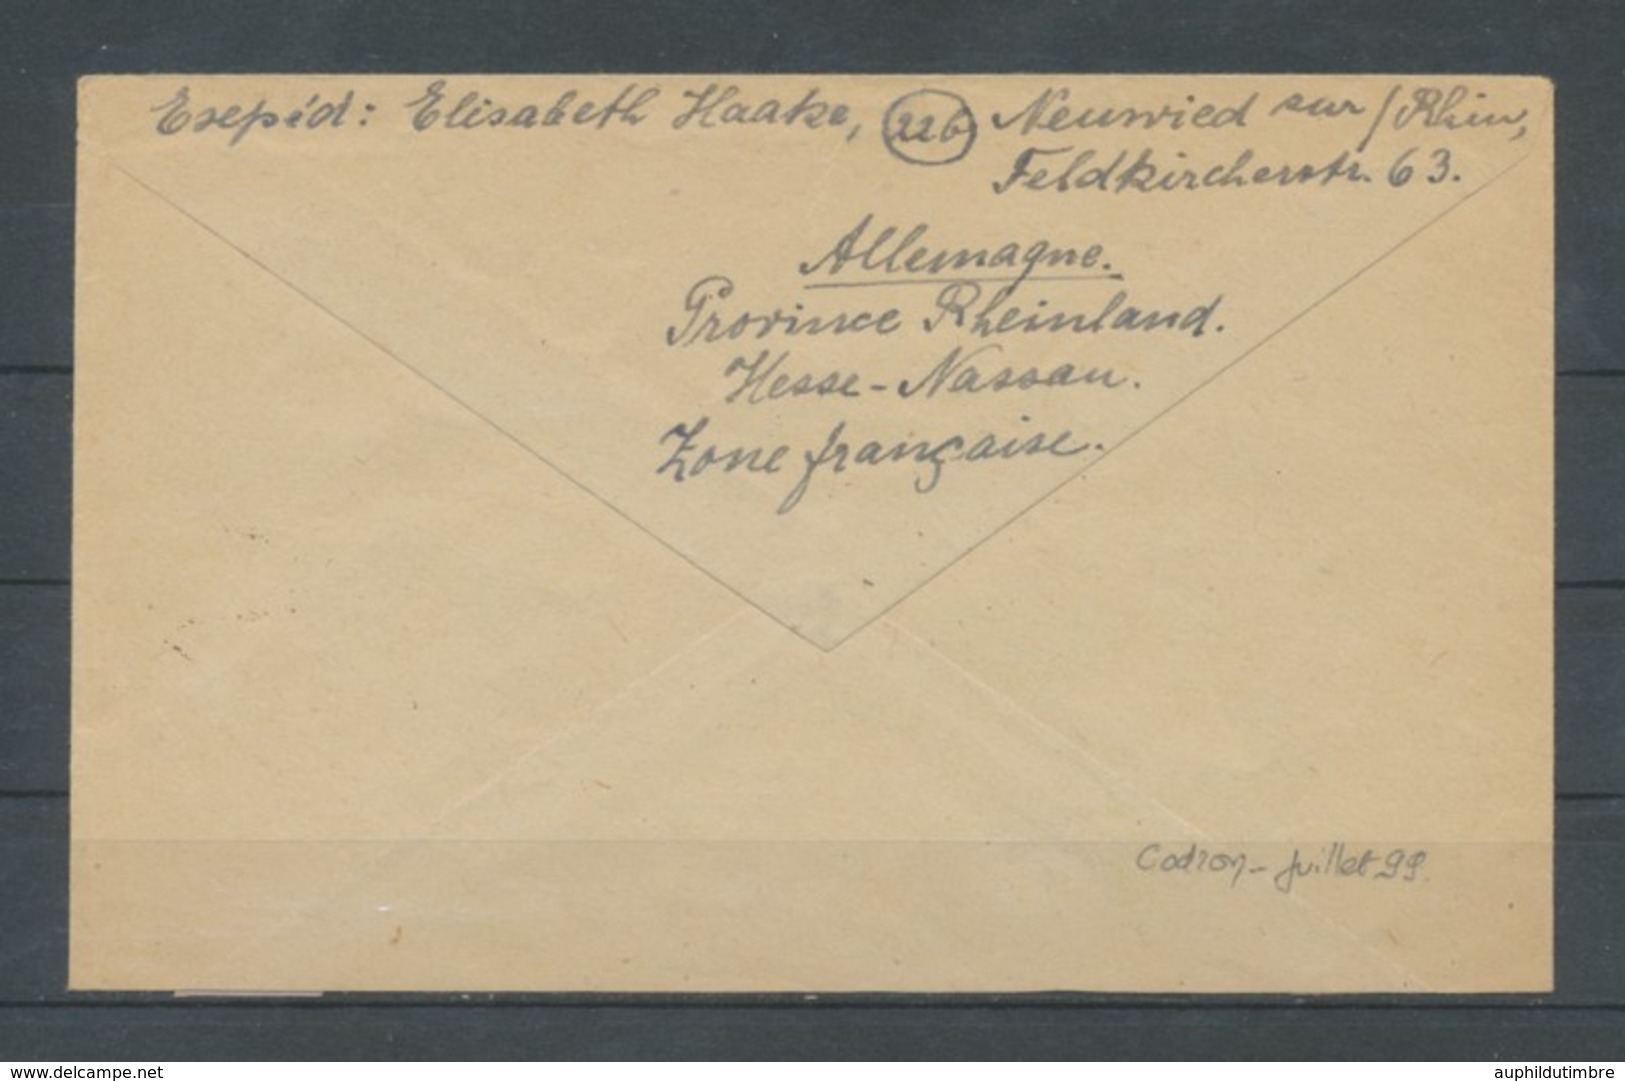 Esepéd: Elisabeth Haake, 22b Neuwied sur/Rhin,
Feldkircherstr. 63.
Allemagne.
Province Rheinland.
Hesse-Nassau.
Zone française.
Codron - Juillet 99.
www.delcampe.net
auphildutimbre